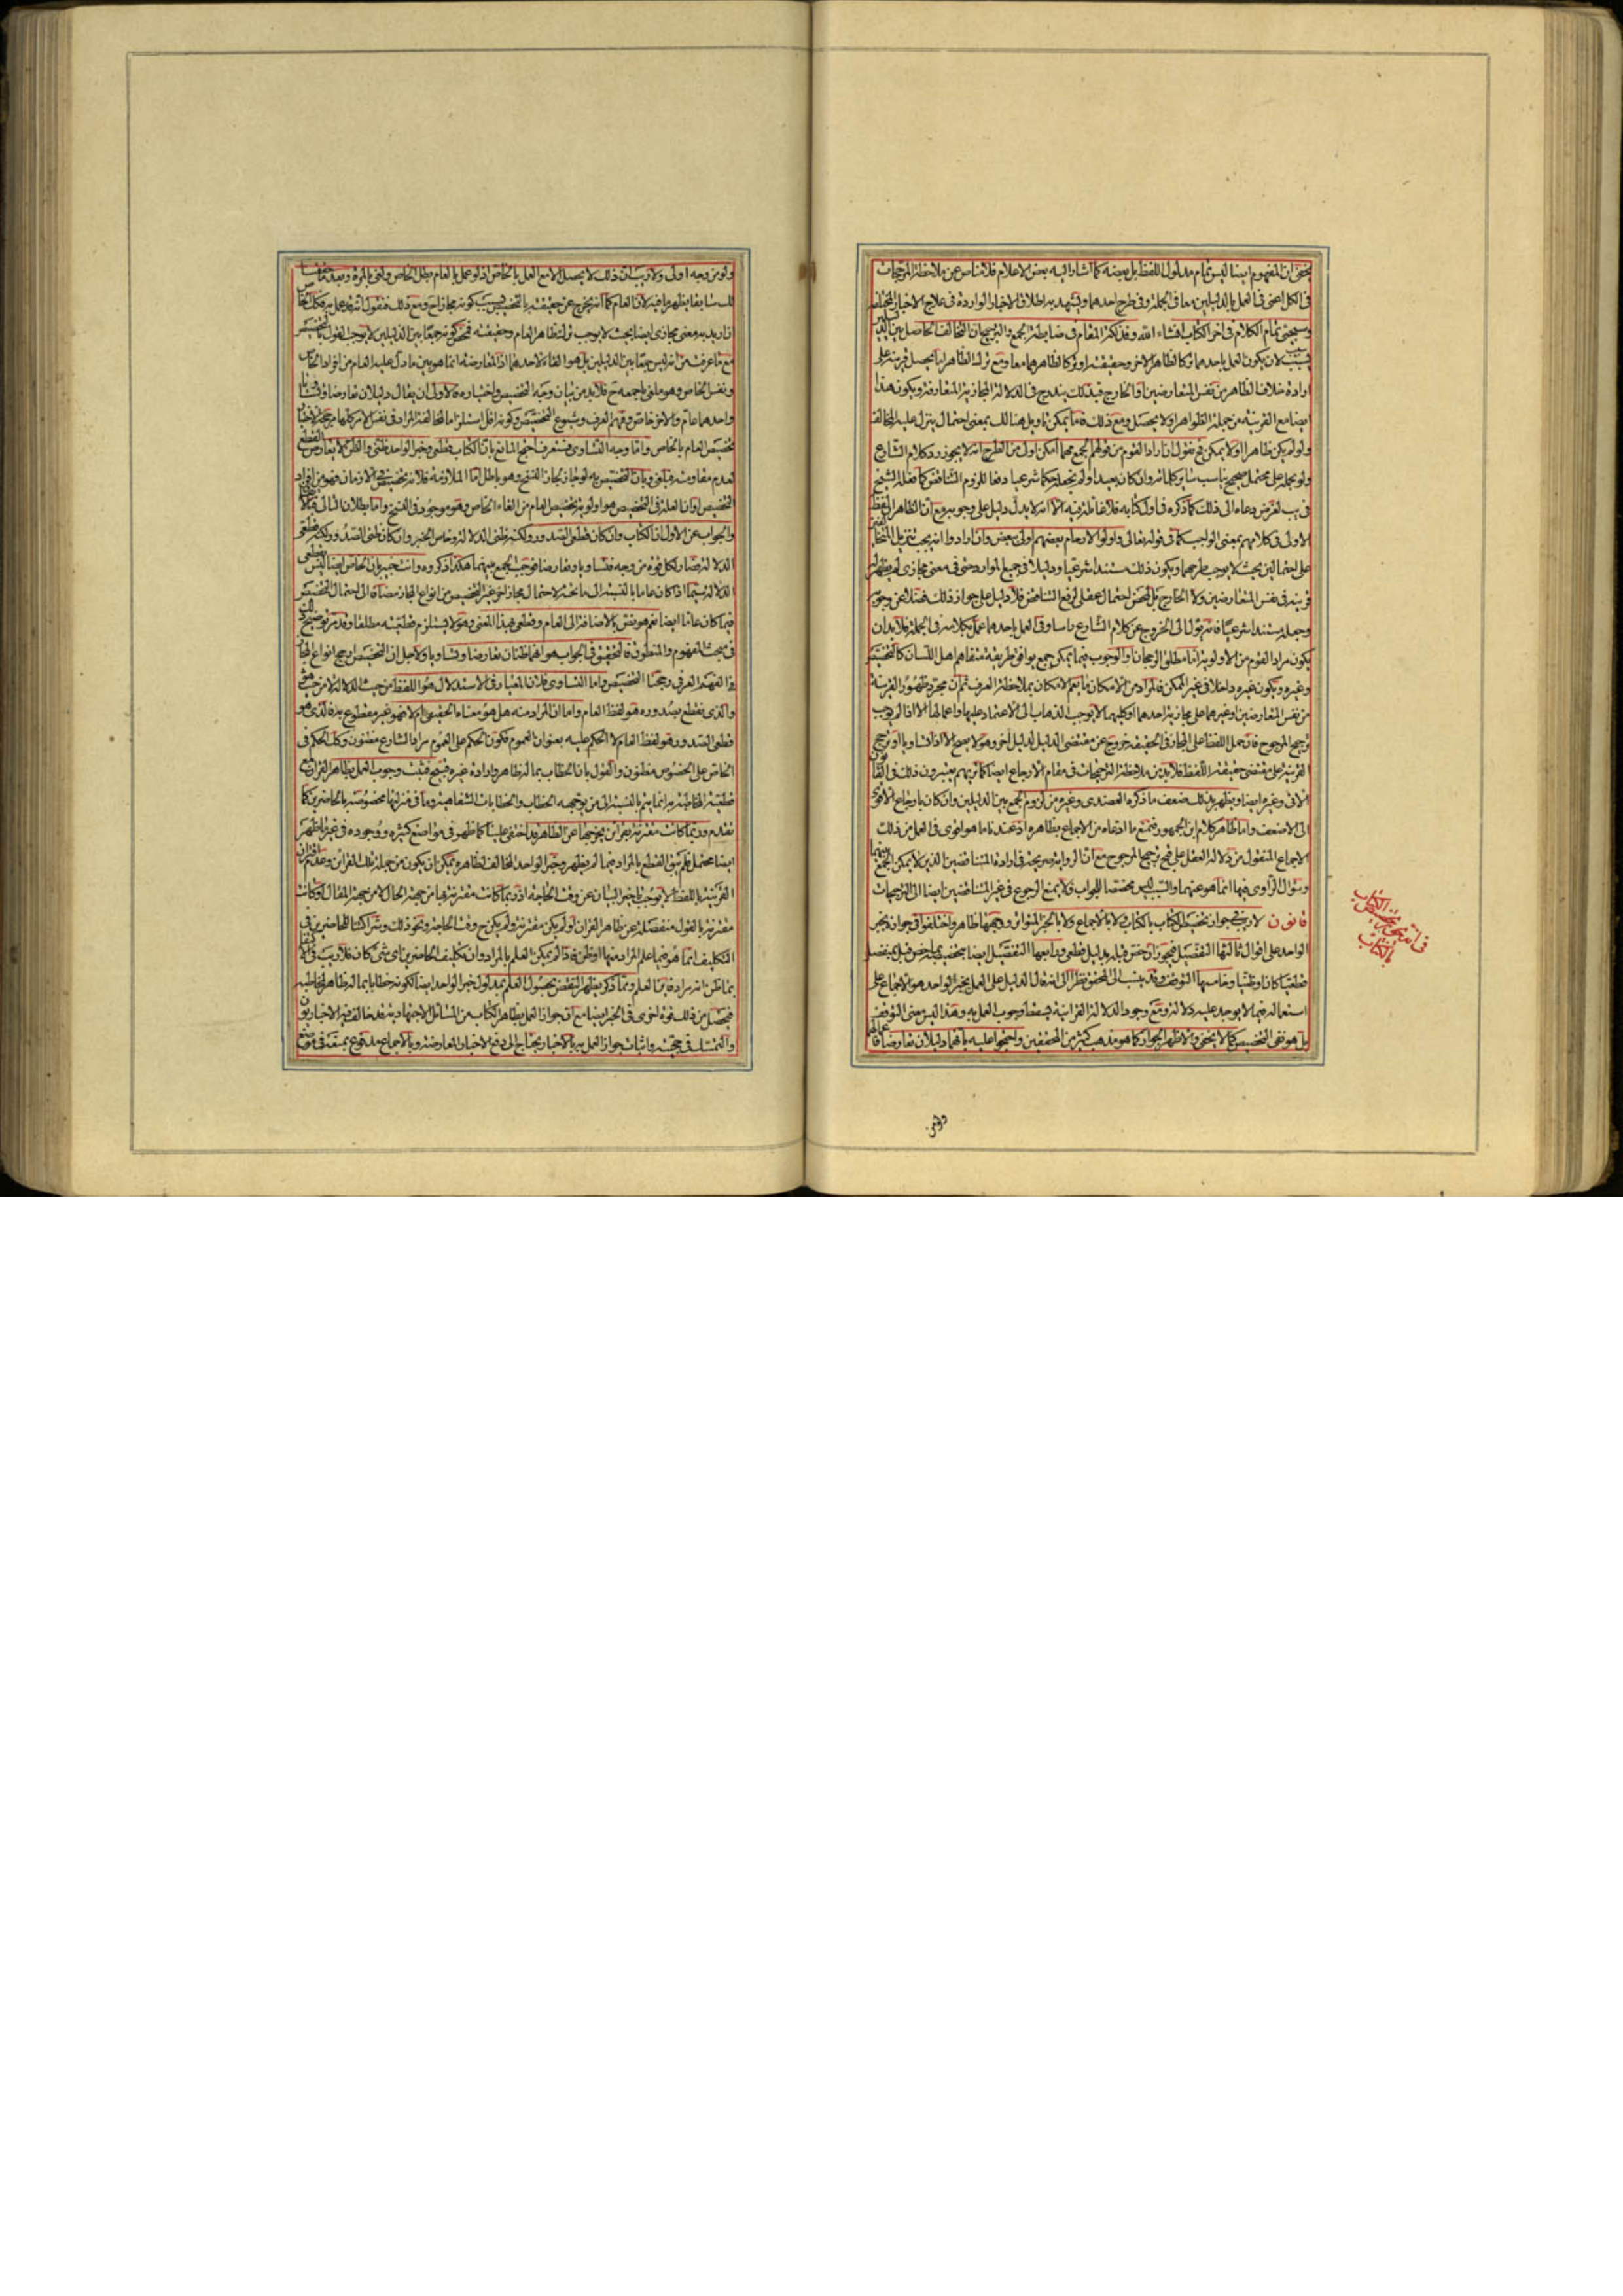 يخفى ان المفهوم ايضا ليس تمام مدلول اللفظ بل بعضه كما اشار اليه بعض الاعلام فلا مناص عن ملاحظة المرجحات
فى الكل اعنى فى العمل بالدليلين معا فى الجملة وفى طرح احدهما ويشهد به اطلاق الاخبار الواردة فى علاج الاخبار المختلفة
وسيجئ تمام الكلام فى اخر الكتاب انشاء الله وفذلكة المقام فى ضابطة الجمع والترجيح ان التخالف الحاصل بين الدليلين
بسبب لان يكون العمل باحدهما تركا لظاهر الاخر وحقيقته او تركا لظاهرهما معا ومع ترك الظاهر اما يحصل قرينة على
ارادة خلاف الظاهر من نفس المتعارضين او الخارج فبذلك يندرج فى الدلالة المجازية المتعارفة ويكون هذا
ايضا مع القرينة من جملة الظواهر او لا يحصل ومع ذلك فاما يمكن تاويل هنالك بمعنى احتمال ينزل عليه المخالف
ولو لم يكن ظاهرا او لا يمكن فح نقول ان اراد القوم من قولهم الجمع مهما امكن اولى من الطرح انه لا يجوز رد كلام الشارع
ولو بحمله على محتمل صحيح يناسب ساير كلماته وان كان بعيدا ولم نجعله حكما شرعيا دفعا للزوم التناقض كما فعله الشيخ
فى يب لغرض دعاه الى ذلك كما ذكره فى اول كتابه فلا غائلة فيه الا انه لا يدل دليل على وجوبه ومع ان الظاهر من لفظ
الاولى فى كلامهم بمعنى الواجب كما فى قوله تعالى واولو الارحام بعضهم اولى ببعض وان ارادوا انه يجب تنزيل المتخالفين
على احتمالين بحيث لا يوجب طرحهما ويكون ذلك مستندا شرعيا ودليلا فى جميع الموارد حتى فى معنى مجازى لم يظهر له
قرينة فى نفس المتعارضين ولا الخارج بل لمحض احتمال عقلى لرفع التناقض فلا دليل على جواز ذلك فضلا عن وجوبه
وجعله مستندا شرعيا فانه يؤل الى الخروج عن كلام الشارع راسا وترك العمل باحدهما عمل بكلامه فى الجملة فلا بد ان
يكون مراد القوم من الاولوية اما مطلق الرجحان او الوجوب فيما يمكن جمع يوافق طريقة متفاهم اهل اللسان كالتخصيص
وغيره ويكون غيره داخلا فى غير الممكن فالمراد من الامكان ما يعم الامكان بملاحظة العرف ثم ان مجرد ظهور القرينة
من نفس المتعارضين او غيرهما على مجازية احدهما او كليهما لا يوجب الذهاب الى الاعتماد عليها واعمالها الا اذا لم يوجب
ترجيح المرجوح فان حمل اللفظ على المجاز فى الحقيقة خروج عن مقتضى الدليل لدليل اخر وهو لا يصح الا اذا تساويا او ترجح
القرينة على مقتضى حقيقة اللفظ فلا بد من ملاحظة الترجيحات فى مقام الارجاع ايضا كما تريهم يعتبرون ذلك فى القانون
الاتى وغيره ايضا ويظهر بذلك ضعف ما ذكره العضدى وغيره من لزوم الجمع بين الدليلين وان كان بارجاع الاقوى
الى الاضعف واما ظاهر كلام ابن الجمهور فنمنع ما ادعاه من الاجماع بظاهره اذ عندنا ما هو اقوى فى العمل من ذلك
الاجماع المنقول من دلالة العقل على قبح ترجيح المرجوح مع ان الرواية صريحة فى ارادة المتناقضين الذين لا يمكن الجمع بينهما
وسؤال الراوى فيها انما هو عنهما والسبب ليس مخصصا للجواب فلا يمنع الرجوع فى غير المتناقضين ايضا الى الترجيحات
قانون لا ريب فى جواز تخصيص الكتاب بالكتاب ولا بالاجماع ولا بالخبر المتواتر ووجهها ظاهر واختلفوا فى جوازه بخبر
الواحد على اقوال ثالثها التفصيل فيجوز ان خص قبله بدليل قطعى ورابعها التفصيل ايضا بتخصيصه بما خص قبل بمنفصل
قطعيا كان او ظنيا وخامسها التوقف وقد ينسب الى المحقق نظرا الى انه قال الدليل على العمل بخبر الواحد هو الاجماع على
استعماله فيما لا يوجد عليه دلالة ومع وجود الدلالة القرانية يسقط وجوب العمل به وهذا ليس معنى التوقف
بل هو نفى التخصيص كما لا يخفى والاظهر الجواز كما هو مذهب كثير من المحققين واحتجوا عليه بانهما دليلان تعارضا فاعمالهما
فى انه يجوز تخصيص الكتاب
بالكتاب
ولو من
ولو من وجه اولى ولا ريب ان ذلك لا يحصل الا مع العمل بالخاص اذ لو عمل بالعام بطل الخاص ولغى بالمرة وبعد ما حققنا
لك سابقا يظهر ما فيه لان العام كما انه يخرج عن حقيقته بالتخصيص بسبب كونه مجازا ح ومع ذلك فنقول انه قد عمل به فكذا الخاص
ان اريد به معنى مجازى ايضا بحيث لا يوجب ترك ظاهر العام وحقيقته فمحض كونه جمعا بين الدليلين لا يوجب القول بالتخصيص
مع ما عرفت من انه ليس جمعا بين الدليلين بل هو الغاء لاحدهما اذ المعارضة انما هو بين ما دل عليه العام من افراد الخاص
ونفس الخاص وهو ملغى باجمعه ح فلا بد من بيان وجه التخصيص واختياره فالاولى ان يقال دليلان تعارضا وتساويا
واحدهما عام والاخر خاص وفهم العرف وشيوع التخصيص وكونه اقل استلزاما لمخالفة المراد فى نفس الامر كلها مرجحة لاختيار
تخصيص العام بالخاص واما وجه التساوى فستعرف احتج المانع بان الكتاب قطعى وخبر الواحد ظنى والظنى لا يعارض القطعى
لعدم مقاومته فيلغى وبان التخصيص به لو جاز لجاز النسخ وهو باطل اما الملازمة فلانه تخصيص فى الازمان فهو من افراد
التخصيص او ان العلة فى التخصيص هو اولوية تخصيص العام من الغاء الخاص وهو موجود فى النسخ واما بطلان التالى فبالاتفاق
والجواب عن الاول ان الكتاب وان كان قطعى الصدور ولكنه ظنى الدلالة وخاص الخبر وان كان ظنى الصدور ولكنه قطعى
الدلالة فصار لكل قوة من وجه فتساويا وتعارضا فوجب الجمع بينهما هكذا ذكروه وانت خبير بان الخاص ايضا ليس بقطعى
الدلالة سيما اذا كان عاما بالنسبة الى ما تحته لاحتمال مجاز اخر غير التخصيص من انواع المجاز مضافا الى احتمال التخصيص
فيما كان عاما ايضا نعم هو نص بالاضافة الى العام وقطعى بهذا المعنى وهو لا يستلزم قطعيته مطلقا وقد مر توضيح ذلك
فى مبحث المفهوم والمنطوق فالتحقيق فى الجواب هو انهما ظنان تعارضا وتساويا ولاجل ان التخصيص ارجح انواع المجاز
والفهم العرفى رجحنا التخصيص واما التساوى فلان المعيار فى الاستدلال هو اللفظ من حيث الدلالة لا من حيث هو
والذى نقطع بصدوره هو لفظ العام واما ان المراد منه هل هو معناه الحقيقى ام لا فهو غير مقطوع به فالذى هو
قطعى الصدور هو لفظ العام لا الحكم عليه بعنوان العموم فكون الحكم على العموم مراد الشارع مظنون وكك الحكم فى
الخاص على الخصوص مظنون والقول بان الخطاب بما له ظاهر وارادة غيره قبيح فثبت وجوب العمل بظاهر القران مع
قطعية المخاطبة به انما يتم بالنسبة الى من يوجه اليه الخطاب والخطابات الشفاهية وما فى منزلتها مخصوصة بالحاضرين كما
تقدم وربما كانت مقترنة بقرائن يخرجها عن الظاهر قد اختفى علينا كما ظهر فى مواضع كثيرة ووجوده فى غير ما ظهر
ايضا محتمل فلم يبق القطع بالمراد فيما لم يظهر وخبر الواحد المخالف لظاهره يمكن ان يكون من جملة تلك القرائن وعدم اقتران
القرينة باللفظ لا يوجب تاخير البيان عن وقت الحاجة اذ ربما كانت مقترنة بها من جهة الحال لا من جهة المقال او كانت
مقترنة بالقول منفصلة عن ظاهر القران او لم يكن مقترنة ولم يكن ح وقت الحاجة ونحو ذلك وشراكتنا للحاضرين فى
التكليف انما هو فيما علم المراد منها او ظن فاذا لم يمكن العلم بالمراد وان تكليف الحاضرين باى شئ كان فلا ريب فى الاكتفاء
بما ظن انه مراد فاين العلم ومما ذكر يظهر النقض بحصول العلم بمدلول خبر الواحد ايضا لكونه خطابا بما له ظاهر لمخاطبه
فيحصل من ذلك قوة اخرى فى الخبر ايضا مع ان جواز العمل بظاهر الكتاب من المسائل الاجتهادية وقد خالف فيه الاخباريون
والتمسك فى حجيته واثبات جواز العمل به بالاخبار يحتاج الى دفع الاخبار المعارضة وبالاجماع مدفوع بمنعه فى موضع